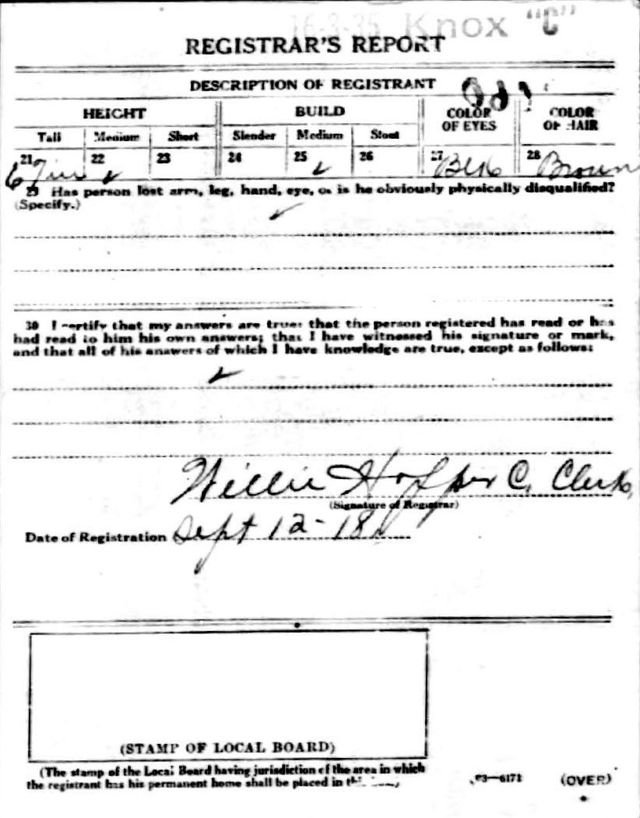 16-3-35 Knox "C"
REGISTRAR'S REPORT
DESCRIPTION OF REGISTRANT
HEIGHT BUILD COLOR OF EYES COLOR OF HAIR
Tall Medium Short Slender Medium Stout
21 22 ✓ 23 24 25 ✓ 26 27 Blk 28 Brown
29 Has person lost arm, leg, hand, eye, or is he obviously physically disqualified?
(Specify.)
✓
30 I certify that my answers are true; that the person registered has read or has
had read to him his own answers; that I have witnessed his signature or mark,
and that all of his answers of which I have knowledge are true, except as follows:
✓
Willie Hopper C. Clerk
(Signature of Registrar)
Date of Registration Sept 12-18
(STAMP OF LOCAL BOARD)
(The stamp of the Local Board having jurisdiction of the area in which
the registrant has his permanent home shall be placed in this
03-6171 (OVER)